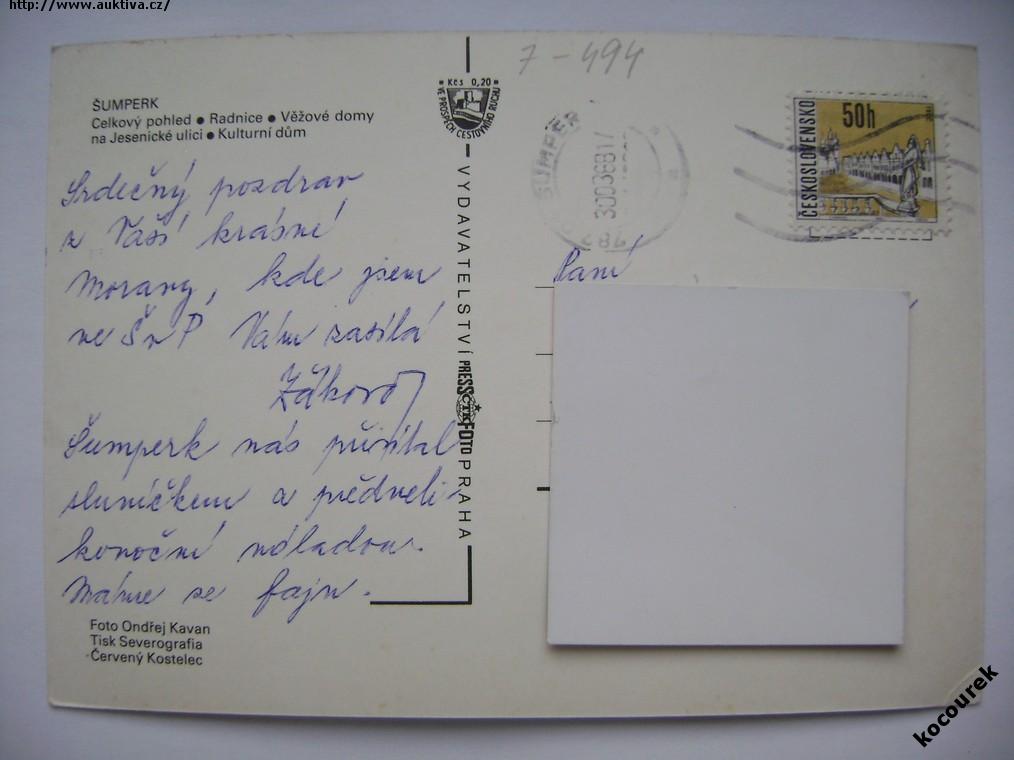 http://www.auktiva.cz/
7-494
ŠUMPERK
Celkový pohled ● Radnice ● Věžové domy
na Jesenické ulici ● Kulturní dům
Kčs 0,20
VE PROSPĚCH CESTOVNÍHO RUCHU
ŠUMPERK
303881
787
ČESKOSLOVENSKO
50h
Srdečný pozdrav
z Vaší krásné
Moravy, kde jsem
ve Šu P Vám zasílá
Žáková
Šumperk nás přivítal
sluníčkem a předveli-
konoční náladou.
Máme se fajn.
VYDAVATELSTVÍ PRESSFOTO PRAHA
ČTK
Paní
Foto Ondřej Kavan
Tisk Severografia
Červený Kostelec
kocourek